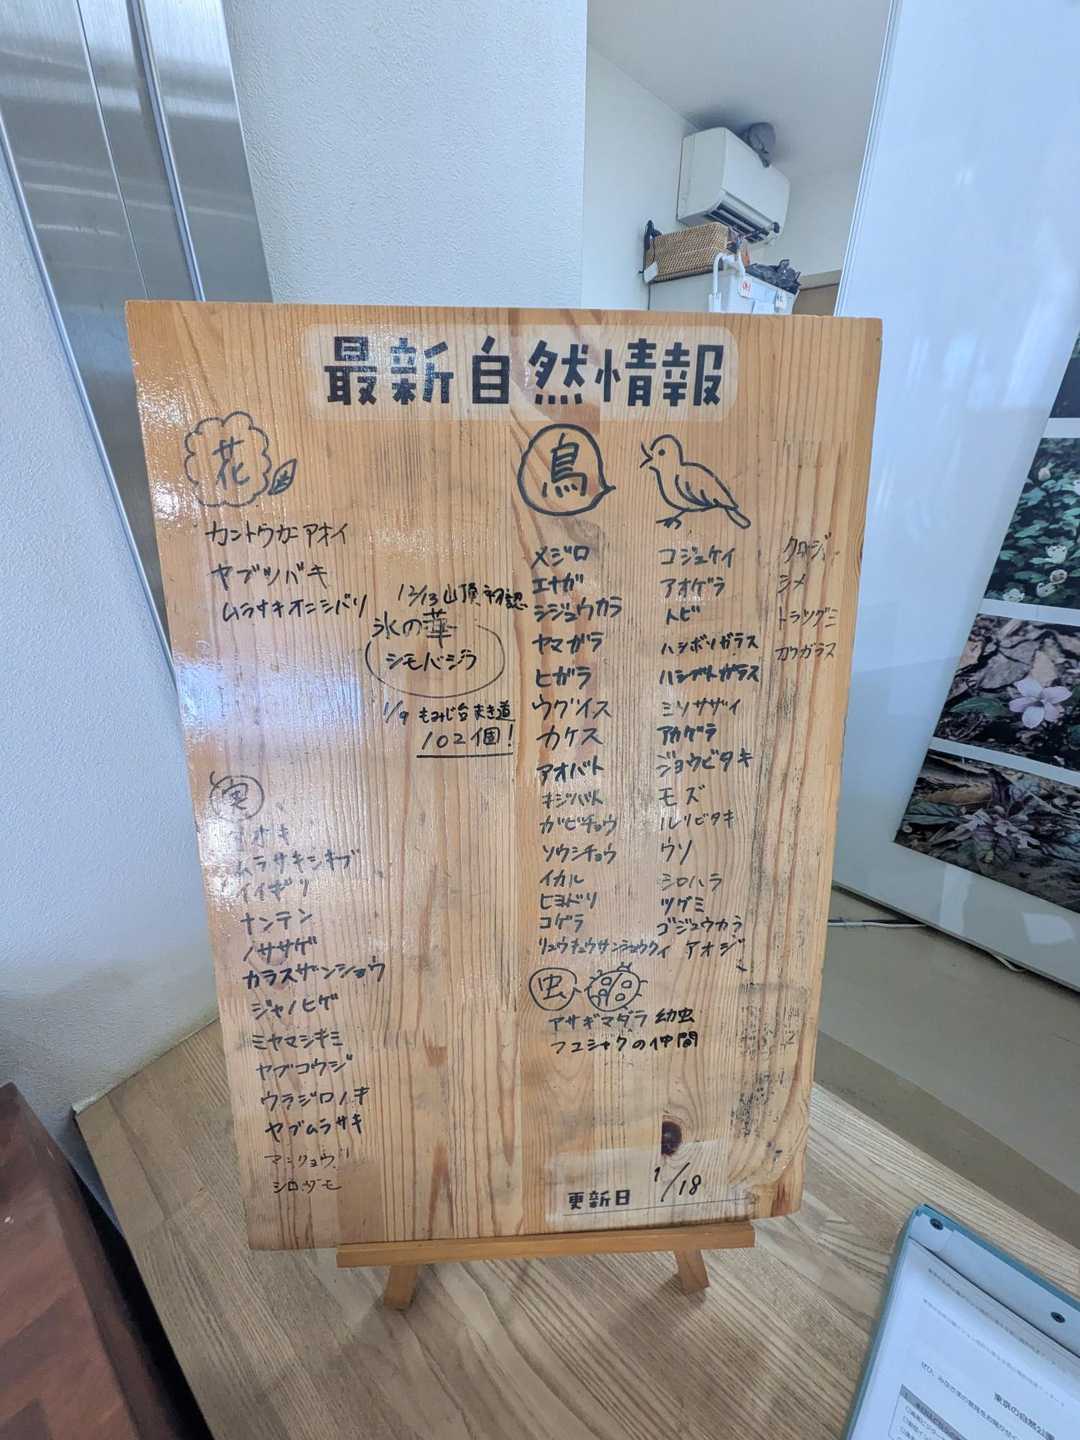 最新自然情報
花
カントウカンアオイ
ヤブツバキ
ムラサキオニシバリ
12/13 山頂 初認
氷の華
シモバシラ
1/9 もみじ台まき道
102個!
実
アオキ
ムラサキシキブ
イイギリ
ナンテン
ノササゲ
カラスザンショウ
ジャノヒゲ
ミヤマシキミ
ヤブコウジ
ウラジロノキ
ヤブムラサキ
マンリョウ
シロダモ
鳥
メジロ
エナガ
シジュウカラ
ヤマガラ
ヒガラ
ウグイス
カケス
アオバト
キジバト
ガビチョウ
ソウシチョウ
イカル
ヒヨドリ
コゲラ
リュウキュウサンショウクイ
コジュケイ
アオゲラ
トビ
ハシボソガラス
ハシブトガラス
ミソサザイ
アカゲラ
ジョウビタキ
モズ
ルリビタキ
ウソ
シロハラ
ツグミ
ゴジュウカラ
アオジ
クロジ
シメ
トラツグミ
カワガラス
虫
アサギマダラ 幼虫
フユシャクの仲間
更新日 1/18
東京の自然公園